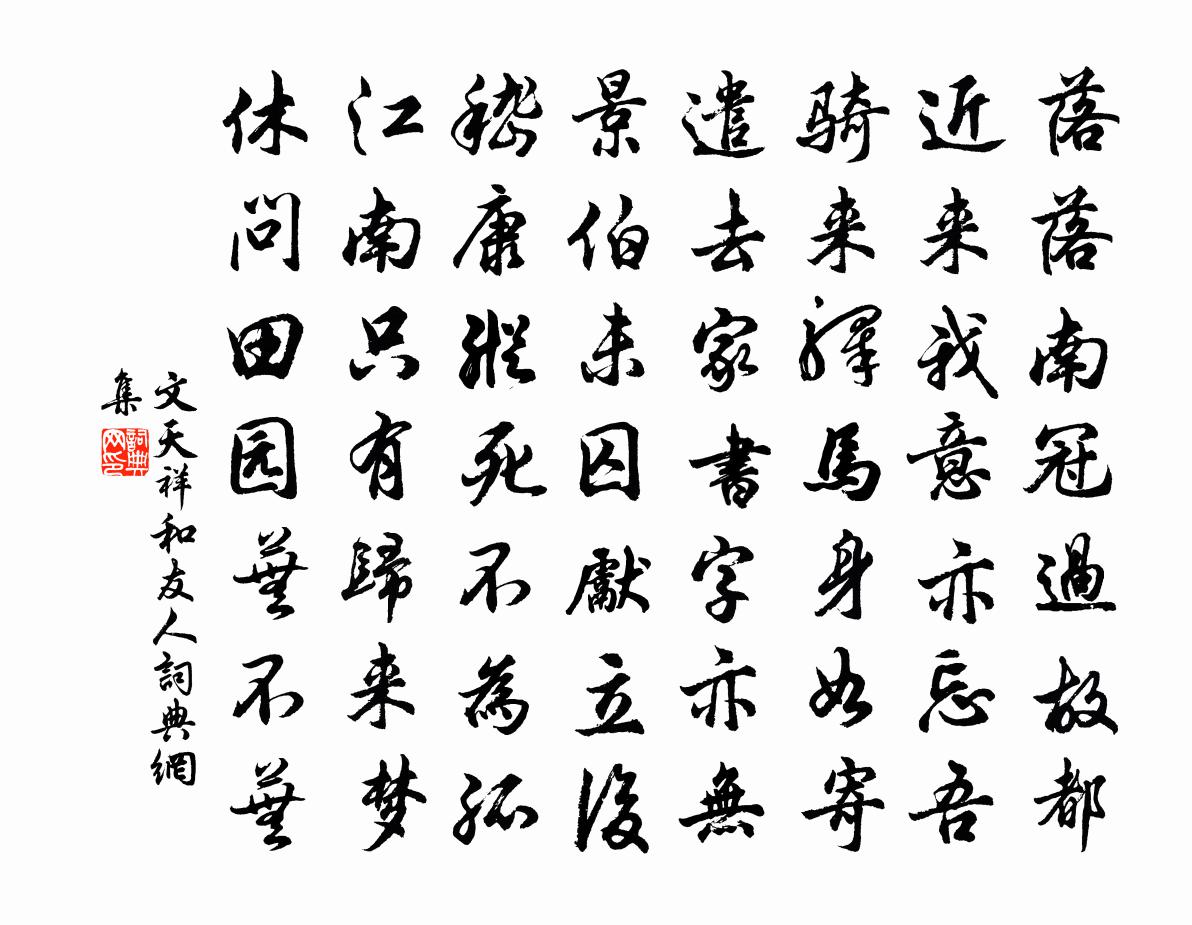 落落南冠過故都
近来我意亦忘吾
騎来驛馬身如寄
遣去家書字亦無
景伯未囚獻立後
嵇康縱死不為孤
江南只有歸来梦
休問田园蕪不蕪
文天祥和友人詞典網
集
詞典網印